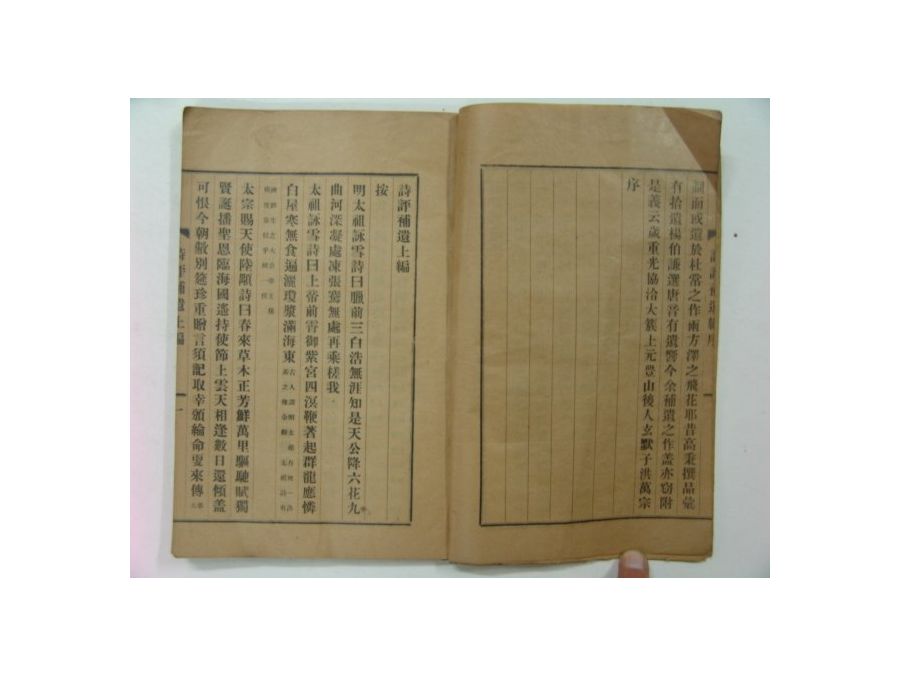 詞而或遺於杜常之作兩方澤之飛花耶昔高秉撰品彙
有拾遺楊伯謙選唐音有遺響今余補遺之作盖亦窃附
是義云歲重光協洽大簇上元豊山後人玄默子洪萬宗
序
詩評補遺上編
按
明太祖詠雪詩曰臘前三白浩無涯知是天公降六花九
曲河深凝處凍張騫無處再乘槎我
太祖詠雪詩曰上帝前宵御紫宮四溟鞭著起群龍應憐
白屋寒無食遍灑瓊漿滿海東
太宗賜天使陸顒詩曰春來草木正芳鮮萬里驅馳賦獨
賢誕播聖恩臨海國遙持使節上雲天相逢數日還傾盖
可恨今朝敝別筵珍重贈言須記取幸頒綸命更來傳
詩評補遺上編 一